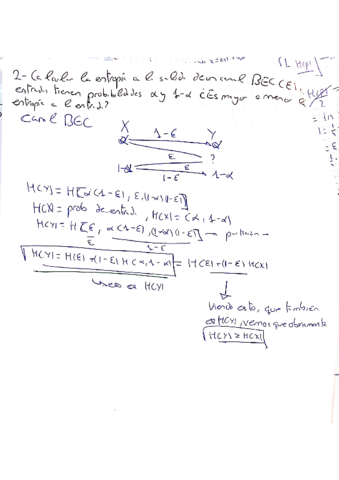 2- Calcular la entropía a la salida de un canal BEC(ε),
entrada tienen probabilidades α y 1-α ¿Es mayor o menor q
entropía a l entrad.?
Canal BEC
X Y
α 1-ε α
ε ?
ε
1-α 1-ε 1-α
H(Y) = H[α(1-ε), ε, (1-α)(1-ε)]
H(X) = prob de entrad, H(X) = (α, 1-α)
H(Y) = H[ε, α(1-ε), (1-α)(1-ε)] →
ε 1-ε
H(Y) = H(ε) + (1-ε) H(α, 1-α) = H(ε) + (1-ε) H(X)
H(Y)
Viendo esto, que también
es H(Y), vemos que obviamente
H(Y) ≥ H(X)